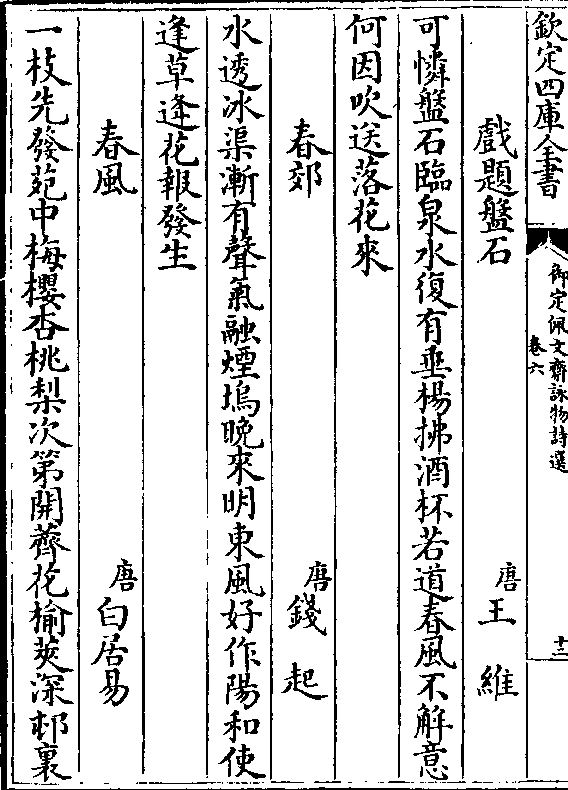 欽定四庫全書
御定佩文齋詠物詩選
卷六
十三
戲題盤石
唐 王維
可憐盤石臨泉水復有垂楊拂酒杯若道春風不解意
何因吹送落花來
春郊
唐 錢起
水透冰渠漸有聲氣融煙塢晚來明東風好作陽和使
逢草逢花報發生
春風
唐 白居易
一枝先發苑中梅櫻杏桃梨次第開薺花榆莢深邨裏